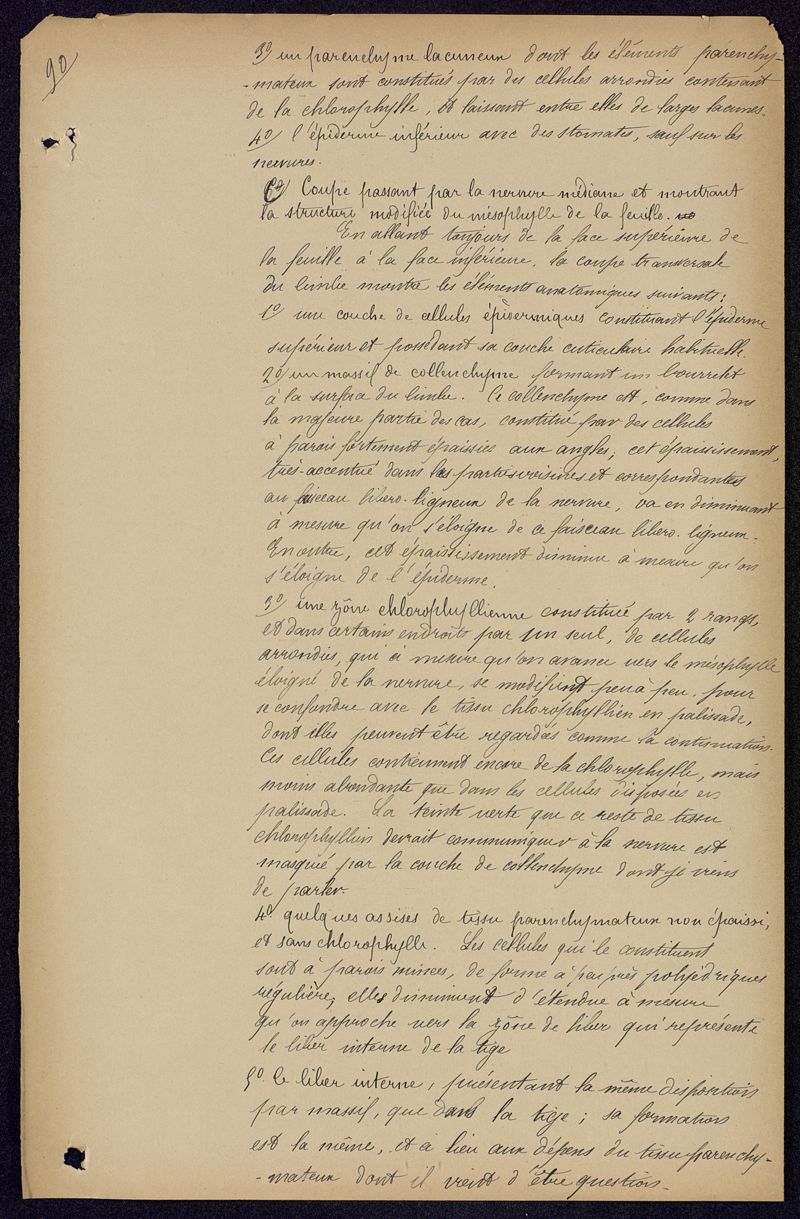 90
3º/ un parenchyme lacuneux dont les éléments parenchy-
-mateux sont constitués par des cellules arrondies contenant
de la chlorophylle, et laissant entre elles de larges lacunes.
4º/ l'épiderme inférieur avec des stomates, sauf sur les
nervures.
Coupe passant par la nervure médiane et montrant
la structure modifiée du mésophylle de la feuille.
En allant toujours de la face supérieure de
la feuille à la face inférieure, la coupe transversale
du limbe montre les éléments anatomiques suivants:
1º une couche de cellules épidermiques constituant l'épiderme
supérieur et possédant sa couche cuticulaire habituelle.
2º/ un massif de collenchyme formant un bourrelet
à la surface du limbe. Ce collenchyme est, comme dans
la majeure partie des cas, constitué par des cellules
à parois fortement épaissies aux angles, cet épaississement,
très-accentué dans les parties voisines et correspondantes
au faisceau libéro-ligneux de la nervure, va en diminuant
à mesure qu'on s'éloigne de ce faisceau libéro-ligneux.
En outre, cet épaississement diminue à mesure qu'on
s'éloigne de l'épiderme.
3º/ une zône chlorophyllienne constituée par 2 rangs,
et dans certains endroits par un seul, de cellules
arrondies, qui à mesure qu'on avance vers le mésophylle
éloigné de la nervure, se modifient peu à peu pour
se confondre avec le tissu chlorophyllien en palissade,
dont elles peuvent être regardées comme la continuation.
Ces cellules contiennent encore de la chlorophylle, mais
moins abondante que dans les cellules disposées en
palissade. La teinte verte que ce reste de tissu
chlorophyllien devrait communiquer à la nervure est
masquée par la couche de collenchyme dont je viens
de parler.
4º. quelques assises de tissu parenchymateux non épaissi,
et sans chlorophylle. Les cellules qui le constituent
sont à parois minces, de forme à peu près polyédriques
régulière, elles diminuent d'étendue à mesure
qu'on approche vers la zône de liber qui représente
le liber interne de la tige
5º. le liber interne, présentant la même disposition
par massif, que dans la tige; sa formation
est la même, et a lieu aux dépens du tissu parenchy-
-mateux dont il vient d'être question.